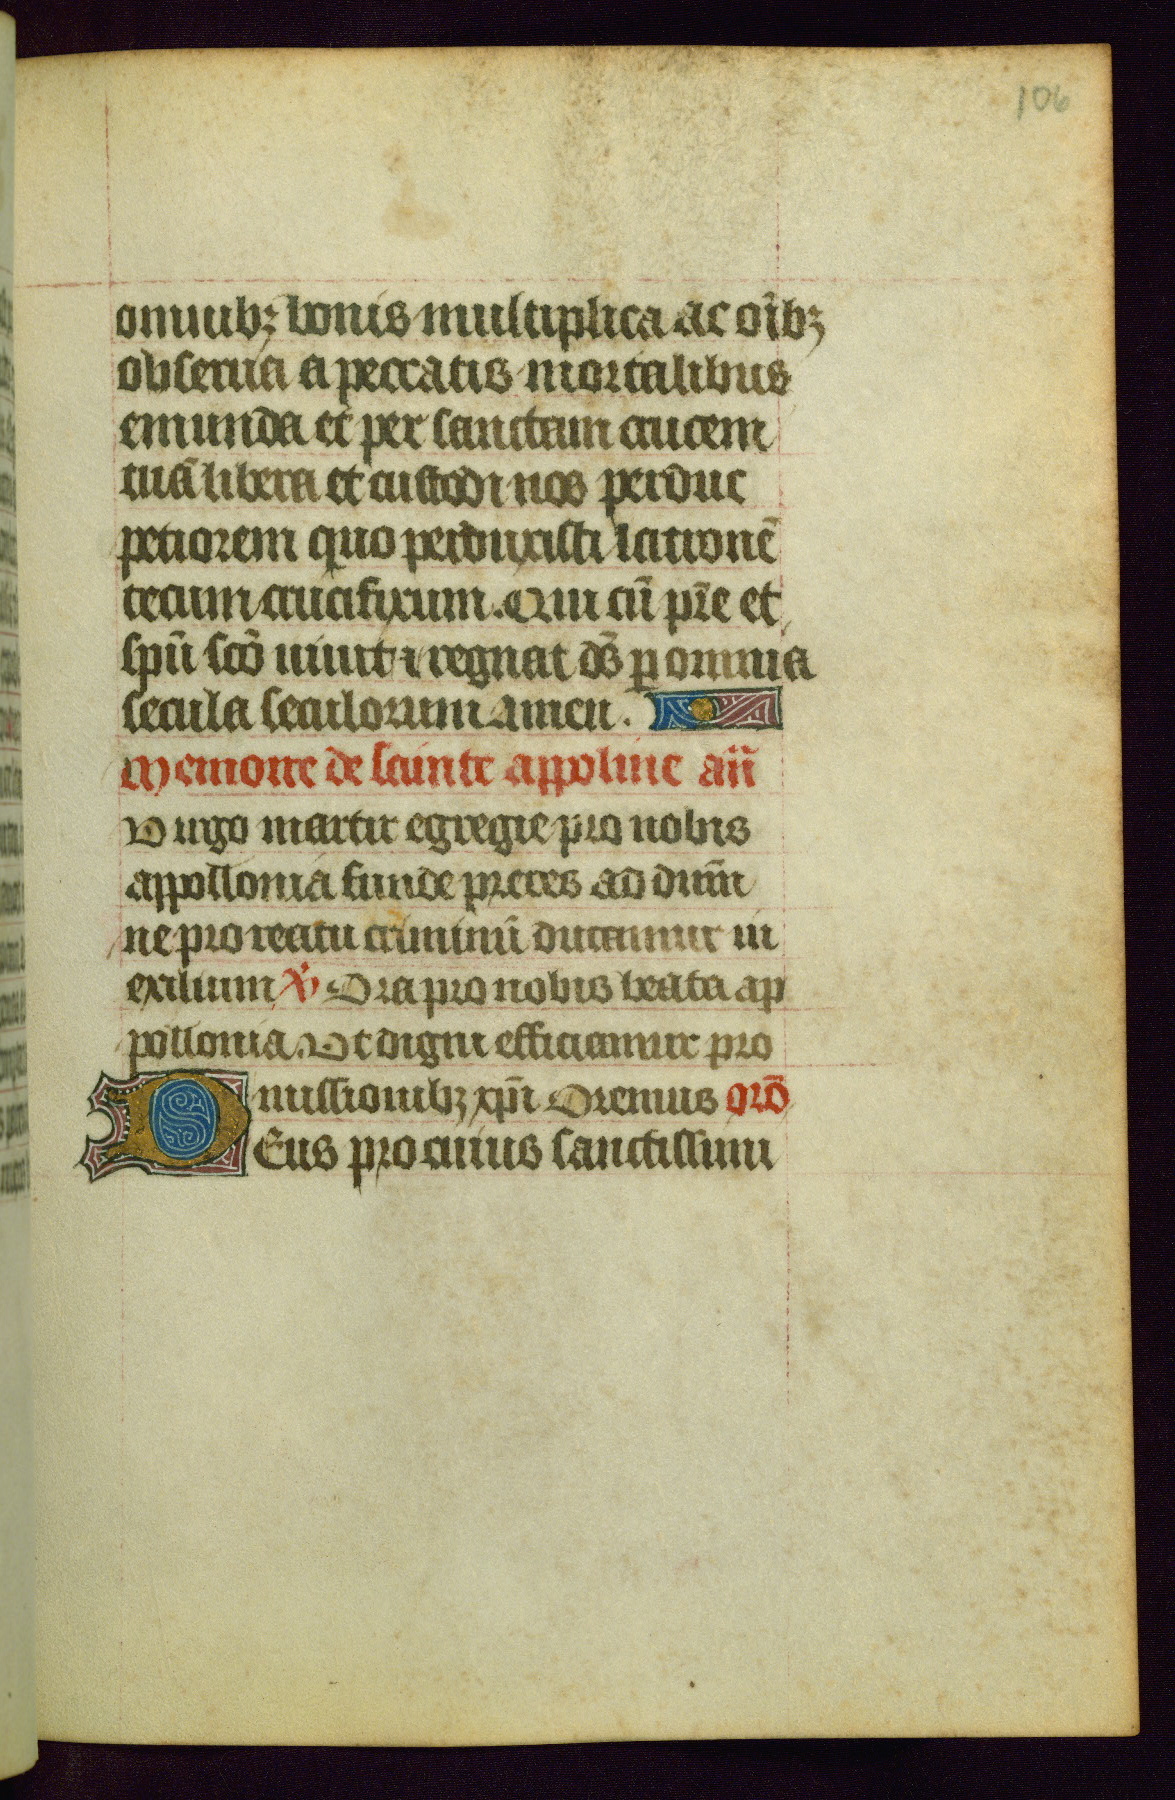 106
omnibꝫ bonis multiplica ac oībꝫ
obserua a peccatis mortalibus
emunda et per sanctam crucem
tuā libera et custodi nos perduc
petiorem quo perduxisti latronē
tecum crucifixum. Qui cū pr̄e et
spū scō uiuit ⁊ regnat ds̄ ꝑ omnia
secula seculorum amen.
Memoire de sainte appoline an̄
Uirgo martir egregie pro nobis
appollonia funde preces ad dn̄m
ne pro reatu criminū ducamur in
exilium ℣ Ora pro nobis beata ap
pollonia. Ut digni efficiamur pro
missionibꝫ xp̄i Oremus orō
DEus pro cuius sanctissimi